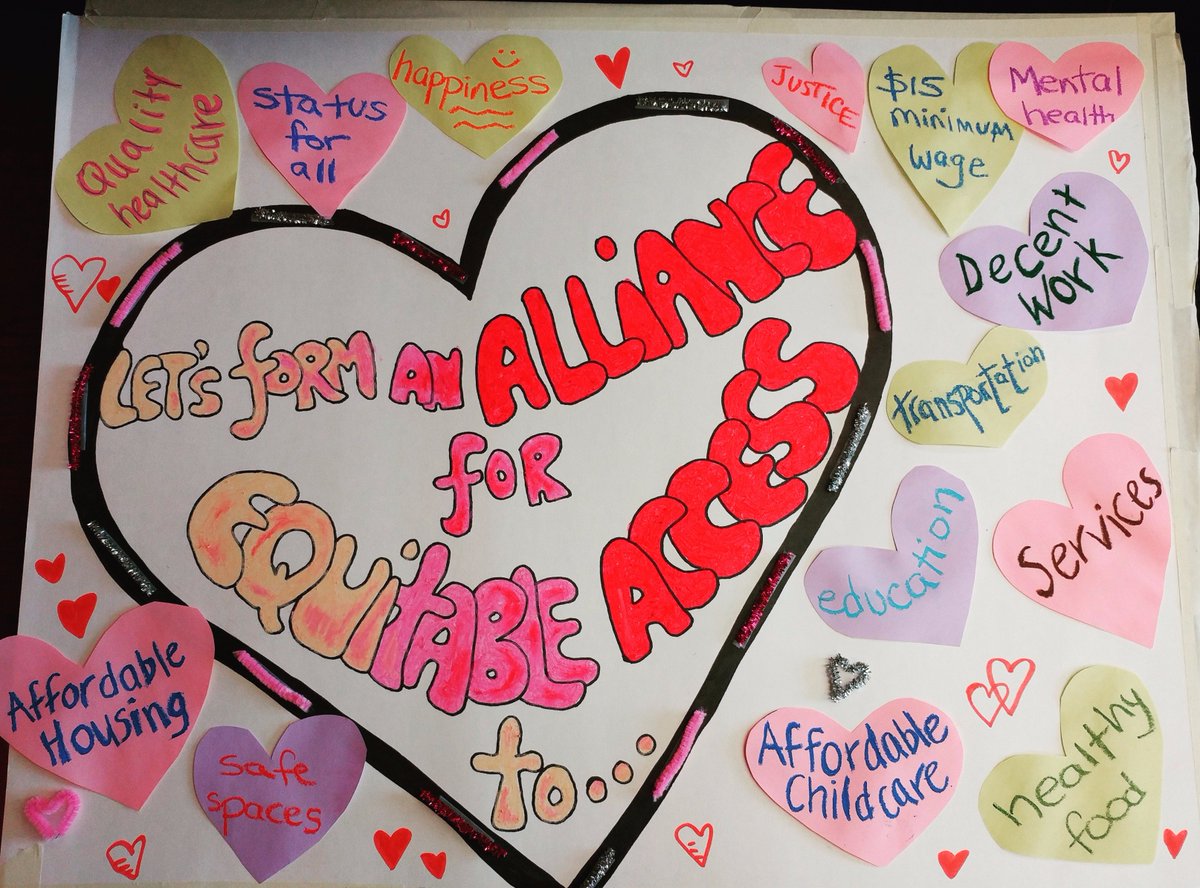 Quality
healthcare
status
for
all
happiness
JUSTICE
$15
minimum
wage
Mental
health
Decent
Work
transportation
education
Services
LET'S FORM AN ALLIANCE
FOR
EQUITABLE ACCESS
to...
Affordable
Housing
safe
spaces
Affordable
Childcare
healthy
food